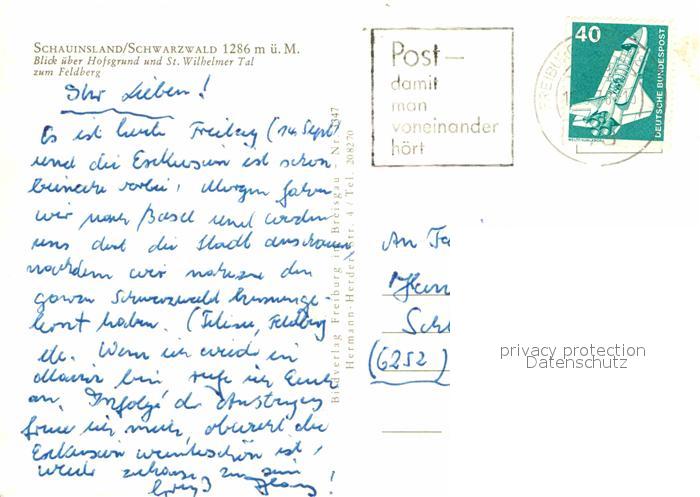 SCHAUINSLAND/SCHWARZWALD 1286 m ü. M.
Blick über Hofsgrund und St. Wilhelmer Tal
zum Feldberg
Ihr Lieben!
Es ist heute Freitag (14. Sept.)
und die Exkursion ist schon
beinahe vorbei, Morgen fahren
wir nach Basel und werden
uns dort die Stadt anschauen
nachdem wir nahezu den
ganzen Schwarzwald kennenge-
lernt haben. (Titisee, Feldberg
etc. Wenn ich wieder in
Mainz bin rufe ich Euch
an. Infolge der
freue ich mich, obwohl die
Exkursion ist,
wieder zuhause zu sein
Hans!
Bildverlag Freiburg im Breisgau
Hermann-Herder-Str. 4 / Tel. 208270
Post –
damit
man
voneinander
hört
FREIBURG
40
DEUTSCHE BUNDESPOST
An Fa
Schl
(6252)
privacy protection
Datenschutz